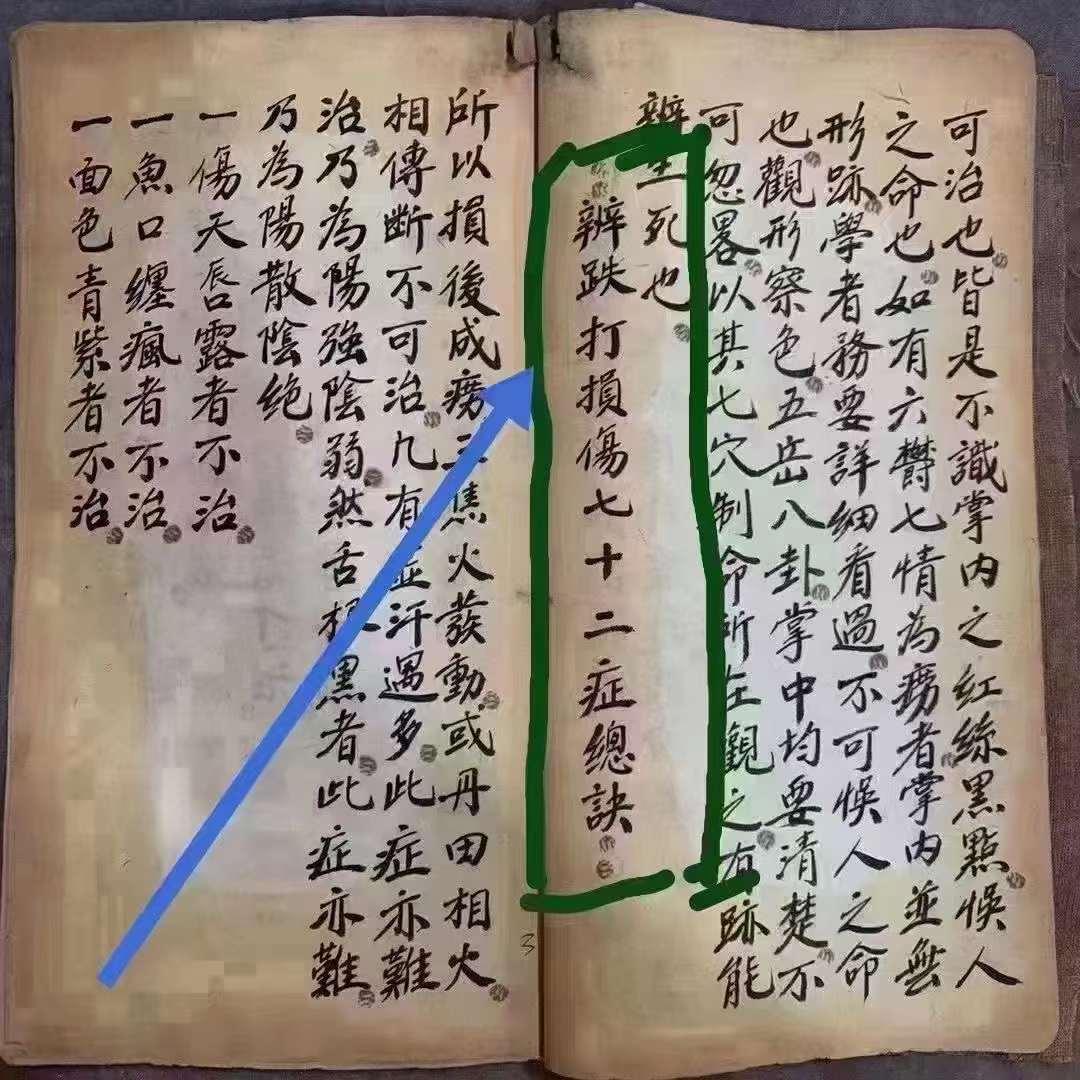 可治也皆是不識掌內之紅絲黑點悞人
之命也如有六欝七情為痨者掌內並無
形跡學者務要詳細看過不可悞人之命
也觀形察色五岳八卦掌中均要清楚不
可忽畧以其七穴制命所在觀之有跡能
辨生死也
辨跌打損傷七十二症總訣
所以損後成痨三焦火發動或丹田相火
相傳斷不可治凡有虛汗遇多此症亦難
治乃為陽強陰弱然舌根黑者此症亦難
乃為陽散陰绝
一傷天唇口露者不治
一魚口纏瘋者不治
一面色青紫者不治
3